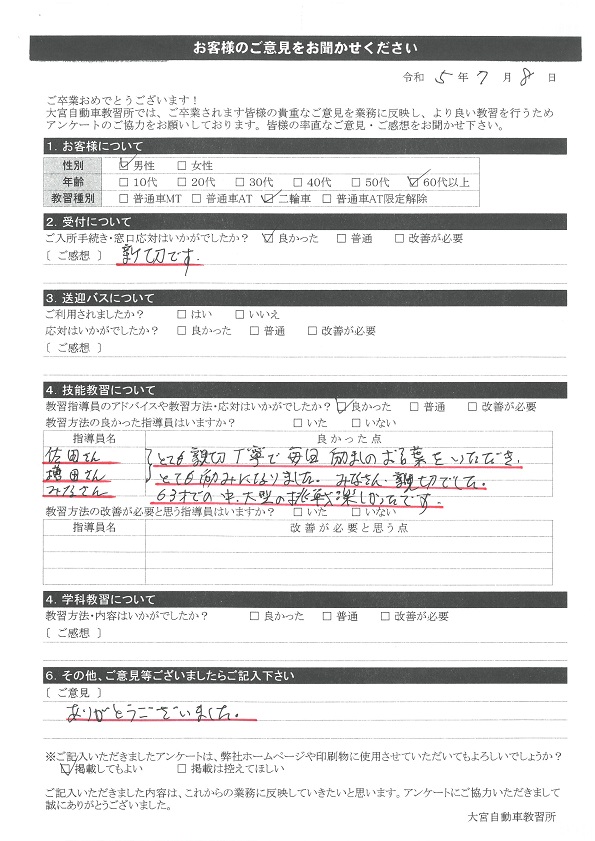 お客様のご意見をお聞かせください
令和 5 年 7 月 8 日
ご卒業おめでとうございます！
大宮自動車教習所では、ご卒業されます皆様の貴重なご意見を業務に反映し、より良い教習を行うため
アンケートのご協力をお願いしております。皆様の率直なご意見・ご感想をお聞かせ下さい。
1. お客様について
性別 ☑男性 □女性
年齢 □10代 □20代 □30代 □40代 □50代 ☑60代以上
教習種別 □普通車MT □普通車AT ☑二輪車 □普通車AT限定解除
2. 受付について
ご入所手続き・窓口応対はいかがでしたか？ ☑良かった □普通 □改善が必要
〔ご感想〕 新切です.
3. 送迎バスについて
ご利用されましたか？ □はい □いいえ
応対はいかがでしたか？ □良かった □普通 □改善が必要
〔ご感想〕
4. 技能教習について
教習指導員のアドバイスや教習方法・応対はいかがでしたか？ ☑良かった □普通 □改善が必要
教習方法の良かった指導員はいますか？ □いた □いない
指導員名 良かった点
佐田さん とても親切丁寧で毎回励ましのお言葉をいただき、
増田さん とても励みになりました。みなさん、親切でした。
みなさん 63才での中.大型の挑戦楽しかったです。
教習方法の改善が必要と思う指導員はいますか？ □いた □いない
指導員名 改善が必要と思う点
4. 学科教習について
教習方法・内容はいかがでしたか？ □良かった □普通 □改善が必要
〔ご感想〕
6. その他、ご意見等ございましたらご記入下さい
〔ご意見〕
ありがとうございました。
※ご記入いただきましたアンケートは、弊社ホームページや印刷物に使用させていただいてもよろしいでしょうか？
☑掲載してもよい □掲載は控えてほしい
ご記入いただきました内容は、これからの業務に反映していきたいと思います。アンケートにご協力いただきまして
誠にありがとうございました。
大宮自動車教習所